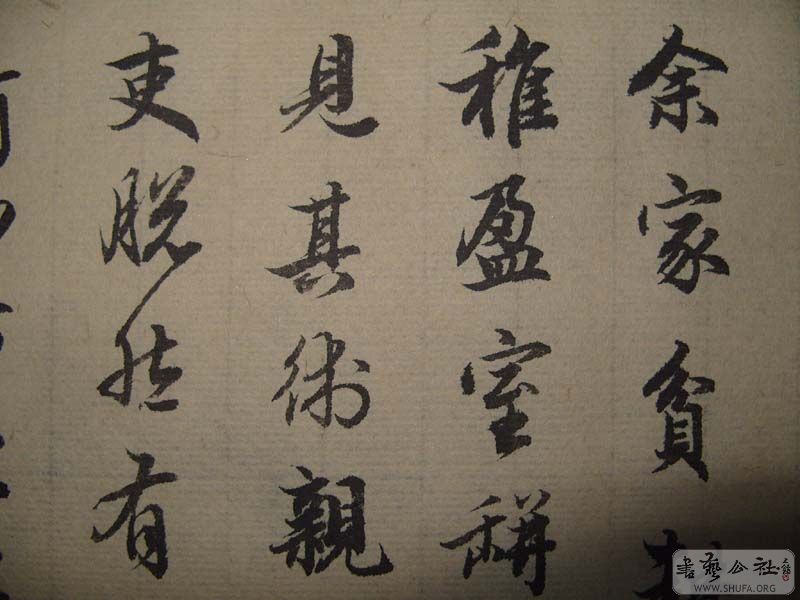 余家貧
稚盈室缾
見其術親
吏脱然有
書藝公社
WWW.SHUFA.ORG